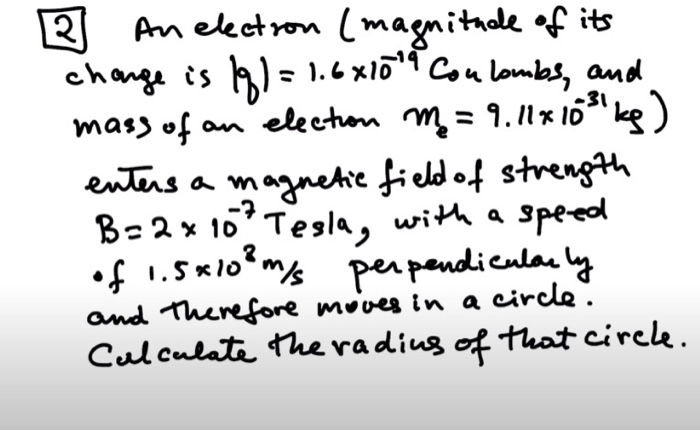 2 An electron (magnitude of its
charge is |q| = 1.6 x 10⁻¹⁹ Coulombs, and
mass of an electron mₑ = 9.11 x 10⁻³¹ kg)
enters a magnetic field of strength
B = 2 x 10⁻⁷ Tesla, with a speed
of 1.5 x 10² m/s perpendicularly
and therefore moves in a circle.
Calculate the radius of that circle.